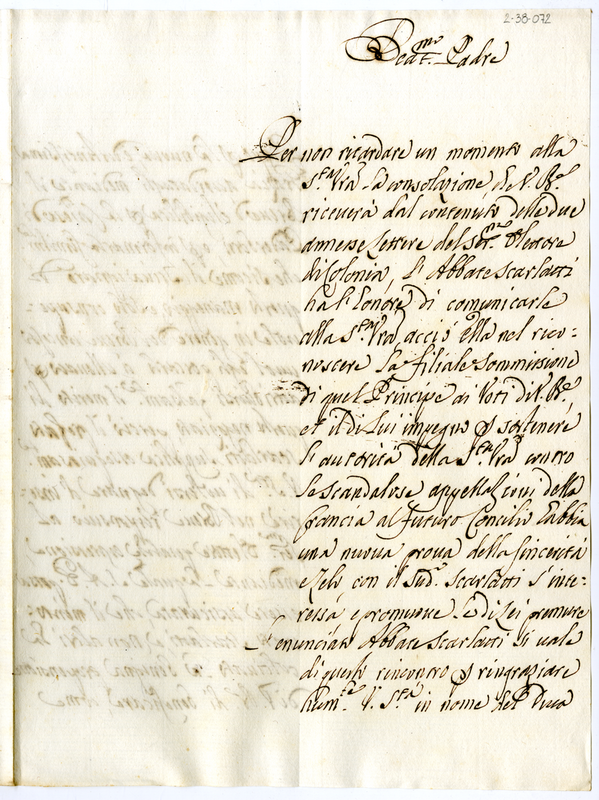 2-38-072
Beat.mo Padre
Per non ritardare un momento alla
S.tà Vrã la consolazione, che V. B.e
riceverà dal contenuto delle due
annesse Lettere del Ser.mo Elettore
di Colonia, l'Abbate Scarlatti
hà l'onore di comunicarle
alla S.tà Vrã acciò ella nel rico-
noscere la filiale sommissione
di quel Principe ai Voti di V. B.e
et il di Lui impegno p sostenere
l'autorità della S.tà Vrã contro
le scandalose appellazioni della
Francia al futuro Concilio habbia
una nuova prova della sincerità
e Zelo con il sud.o Scarlatti s'inte-
ressa e promuove le di Lei premure
enunciato Abbate Scarlatti si vale
di questo rincontro p ringraziare
hum.te V. S.tà in nome del Duca